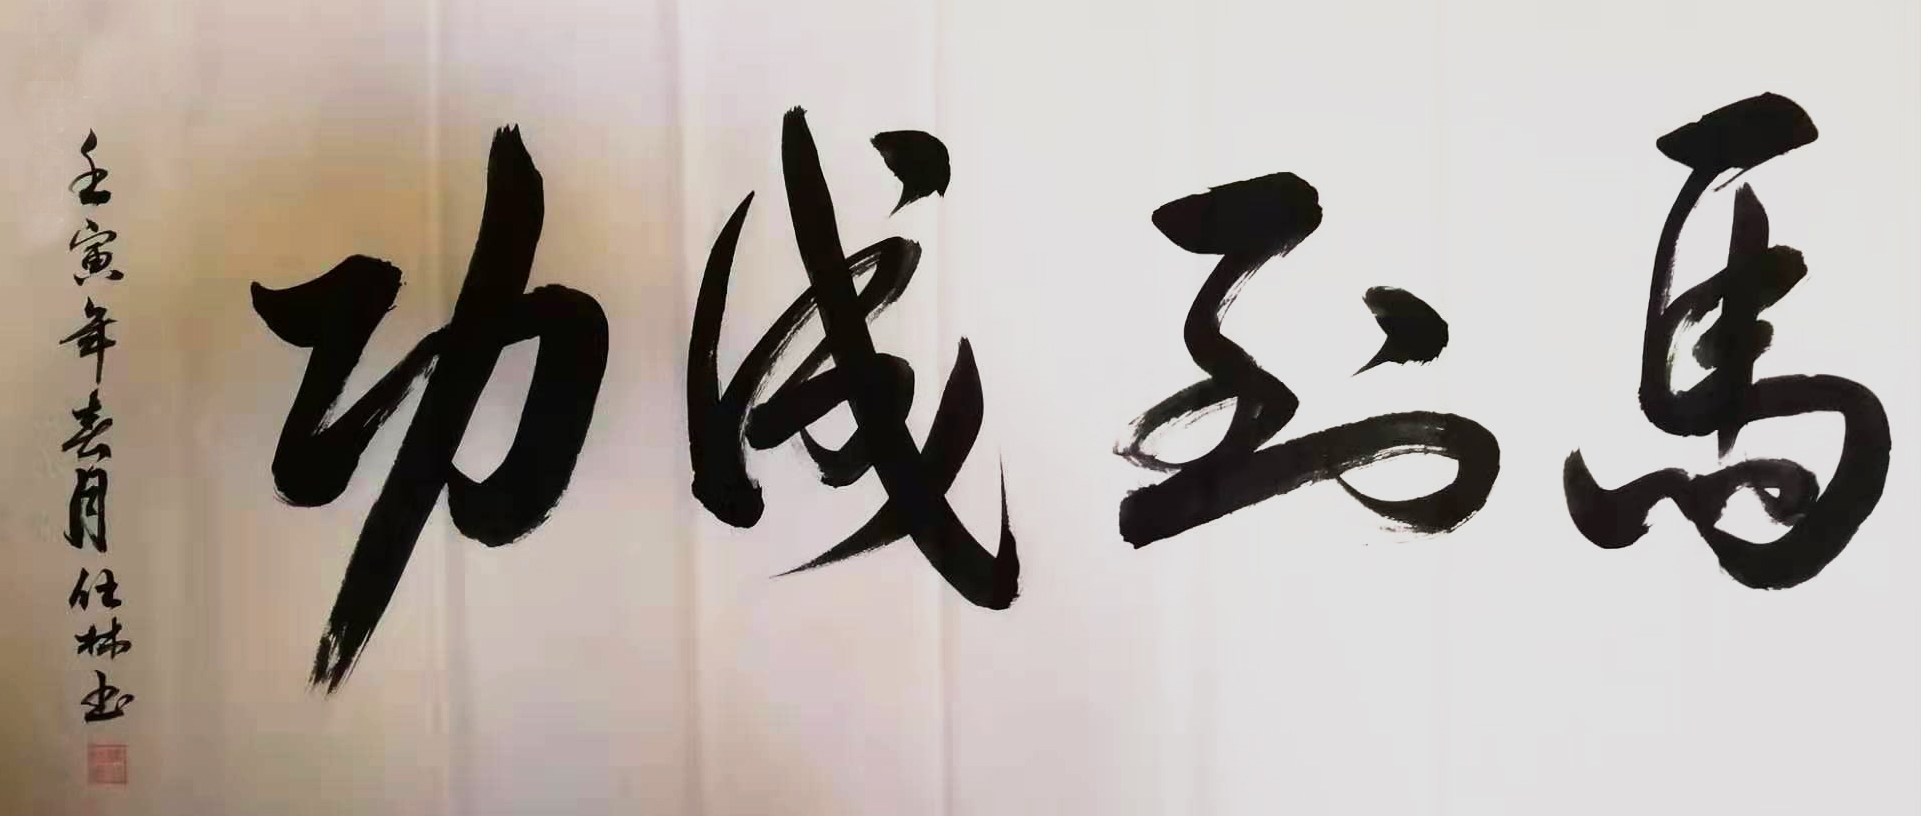 馬到成功
壬寅年春月仕林书